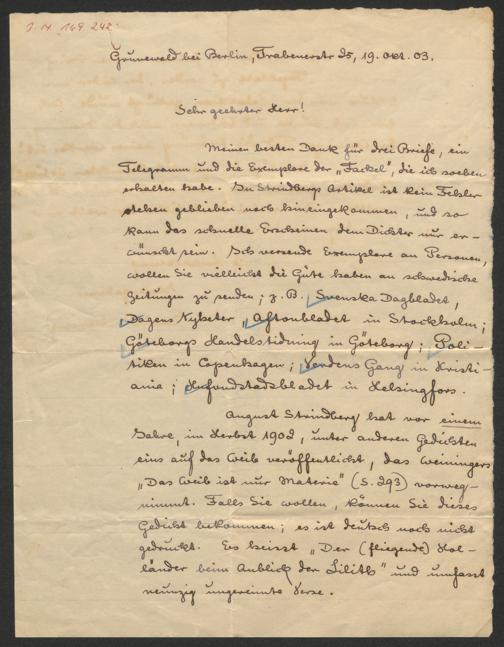 J. N. 169.242
Grunewald bei Berlin, Trabenerstr 25, 19. Okt. 03.
Sehr geehrter Herr!
Meinen besten Dank für drei Briefe, ein
Telegramm und die Exemplare der „Fackel", die ich soeben
erhalten habe. In Strindbergs Artikel ist kein Fehler
stehen geblieben noch hineingekommen, und so
kann das schnelle Erscheinen dem Dichter nur er-
wünscht sein. Ich versende Exemplare an Personen,
wollen Sie vielleicht die Güte haben an schwedische
Zeitungen zu senden; z. B. Svenska Dagbladet,
Dagens Nyheter, Aftonbladet in Stockholm;
Göteborgs Handelstidning in Göteborg; Poli-
tiken in Copenhagen; Verdens Gang in Kristi-
ania; Hufvudstadsbladet in Helsingfors.
August Strindberg hat vor einem
Jahre, im Herbst 1902, unter anderen Gedichten
eins auf das Weib veröffentlicht, das Weiningers
„Das Weib ist nur Materie" (S. 293) vorweg-
nimmt. Falls Sie wollen, können Sie dieses
Gedicht bekommen; es ist deutsch noch nicht
gedruckt. Es heisst „Der (fliegende) Hol-
länder beim Anblick der Lilith" und umfasst
neunzig ungereimte Verse.